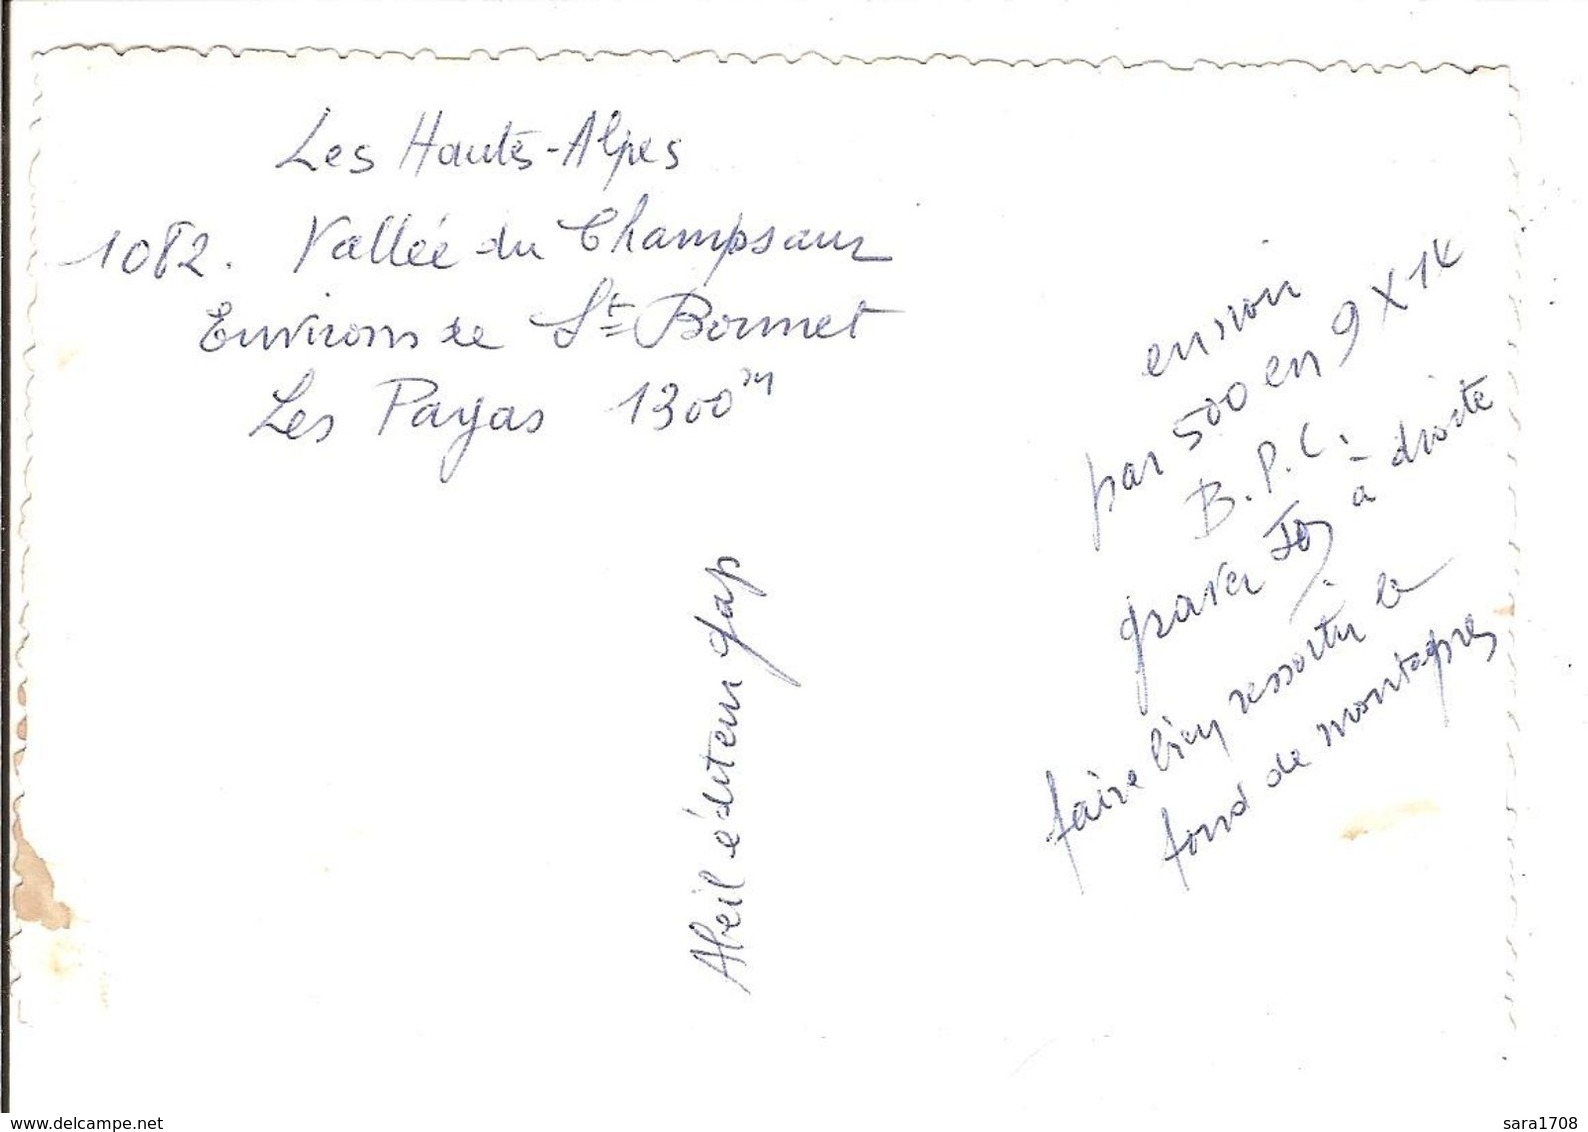 Les Hautes-Alpes
1082. Vallée du Champsaur
Environs de St Bonnet
Les Payas 1300m
Abeil éditeur gap
par 500 en 9 X 14
B.P.C.
graver à droite
faire bien ressortir le
fond de montagnes
www.delcampe.net
sara1708